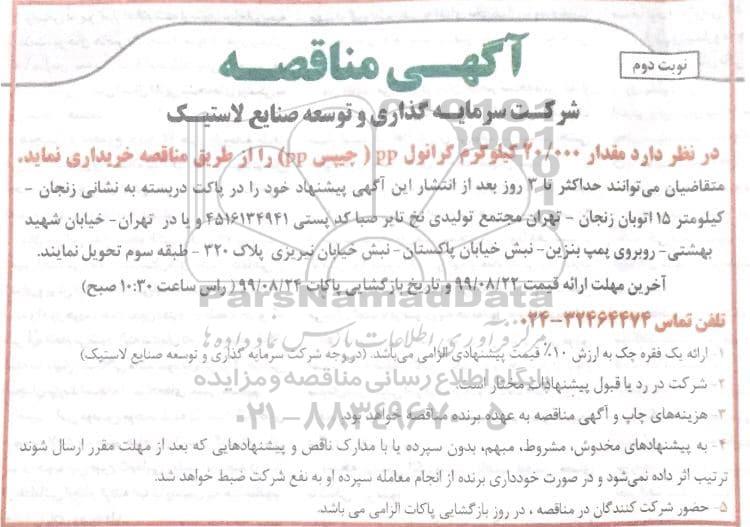 آگهی مناقصه
نوبت دوم
شرکت سرمایه گذاری و توسعه صنایع لاستیک
در نظر دارد مقدار ۲۰/۰۰۰ کیلوگرم گرانول pp ( چیپس pp) را از طریق مناقصه خریداری نماید.
متقاضیان می‌توانند حداکثر تا ۳ روز بعد از انتشار این آگهی پیشنهاد خود را در پاکت دربسته به نشانی زنجان -
کیلومتر ۱۵ اتوبان زنجان - تهران مجتمع تولیدی نخ تایر صبا کد پستی ۴۵۱۶۱۳۴۹۴۱ و یا در تهران- خیابان شهید
بهشتی- روبروی پمپ بنزین- نبش خیابان پاکستان- نبش خیابان تبریزی پلاک ۳۲۰ - طبقه سوم تحویل نمایند.
آخرین مهلت ارائه قیمت ۹۹/۰۸/۲۲ و تاریخ بازگشایی پاکات ۹۹/۰۸/۲۴ ( راس ساعت ۱۰:۳۰ صبح)
ParsNamadData
تلفن تماس ۳۲۴۶۴۴۷۴-۰۲۴
مرکز فرآوری اطلاعات پارس نماد داده ها
۱- ارائه یک فقره چک به ارزش ۱۰٪ قیمت پیشنهادی الزامی می‌باشد. (در وجه شرکت سرمایه گذاری و توسعه صنایع لاستیک)
پایگاه اطلاع رسانی مناقصه و مزایده
۲- شرکت در رد یا قبول پیشنهادات مختار است.
۰۲۱-۸۸۳۴۹۶۷۰-۵
۳- هزینه‌های چاپ و آگهی مناقصه به عهده برنده مناقصه خواهد بود.
۴- به پیشنهادهای مخدوش، مشروط، مبهم، بدون سپرده یا با مدارک ناقص و پیشنهادهایی که بعد از مهلت مقرر ارسال شوند
ترتیب اثر داده نمی‌شود و در صورت خودداری برنده از انجام معامله سپرده او به نفع شرکت ضبط خواهد شد.
۵- حضور شرکت کنندگان در مناقصه ، در روز بازگشایی پاکات الزامی می باشد.